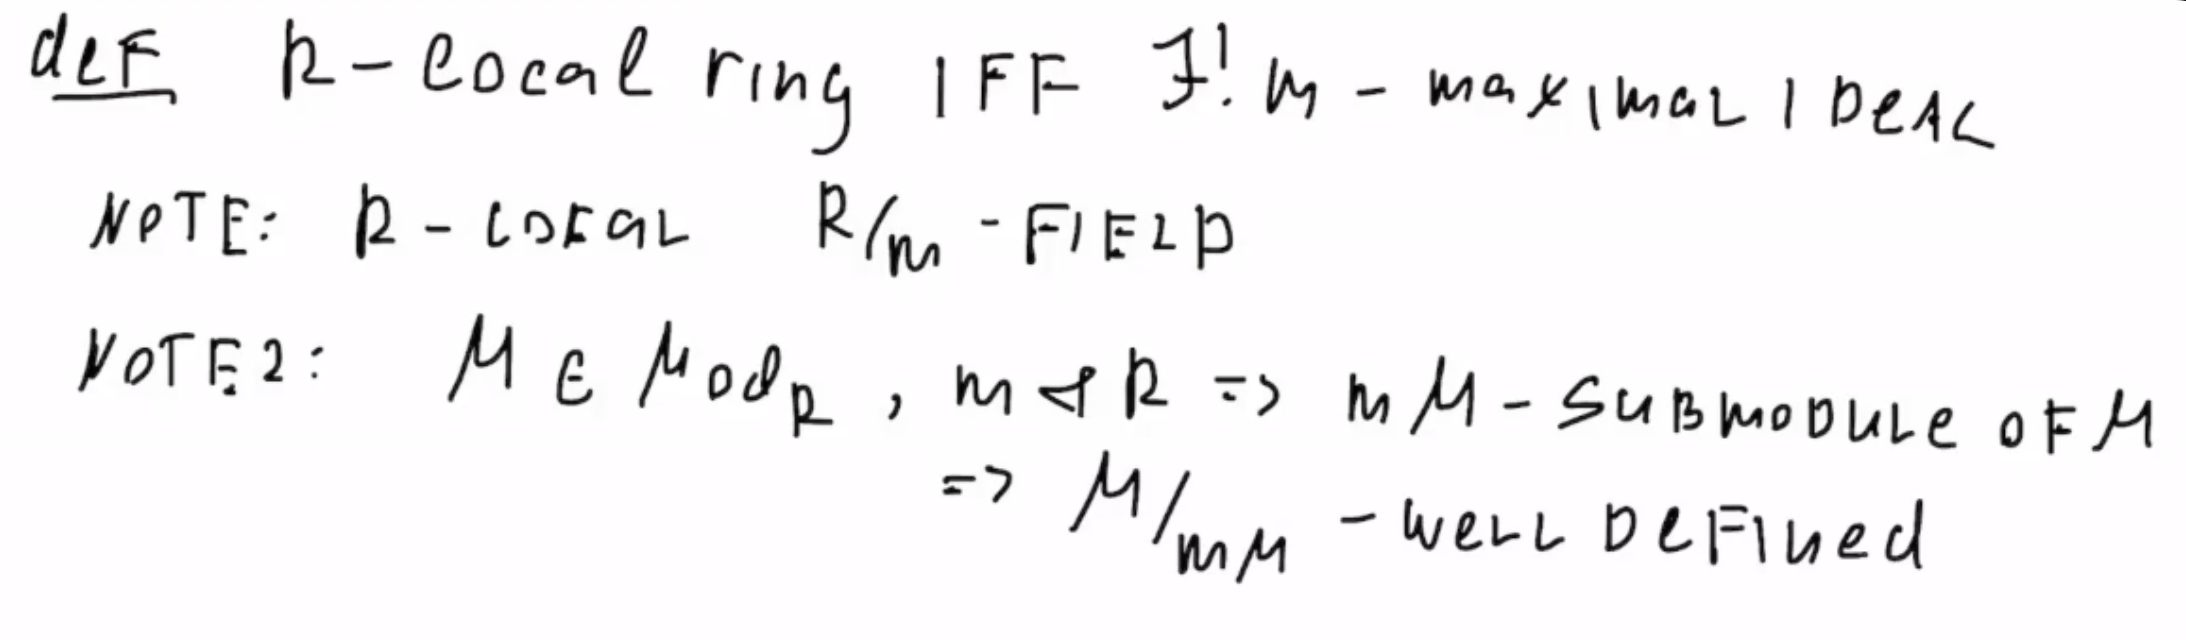 def R - local ring IFF ∃! m - maximal IDeAL
NOTE: R - LOCAL R/m - FIELD
NOTE2: M ∈ Mod_R, m ⊲ R => mM - SUBMODULE OF M
=> M/mM - WELL DEFINed